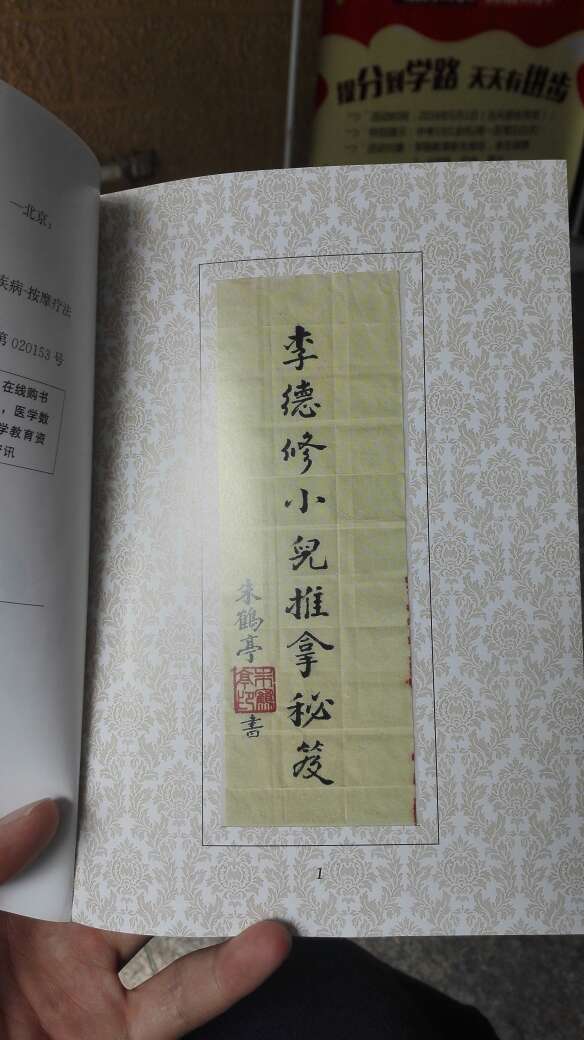 提分到学路 天天有进步
一北京：
疾病-按摩疗法
第 020153 号
在线购书
，医学数
学教育资
资讯
李德修小兒推拿秘笈
朱鶴亭
書
1